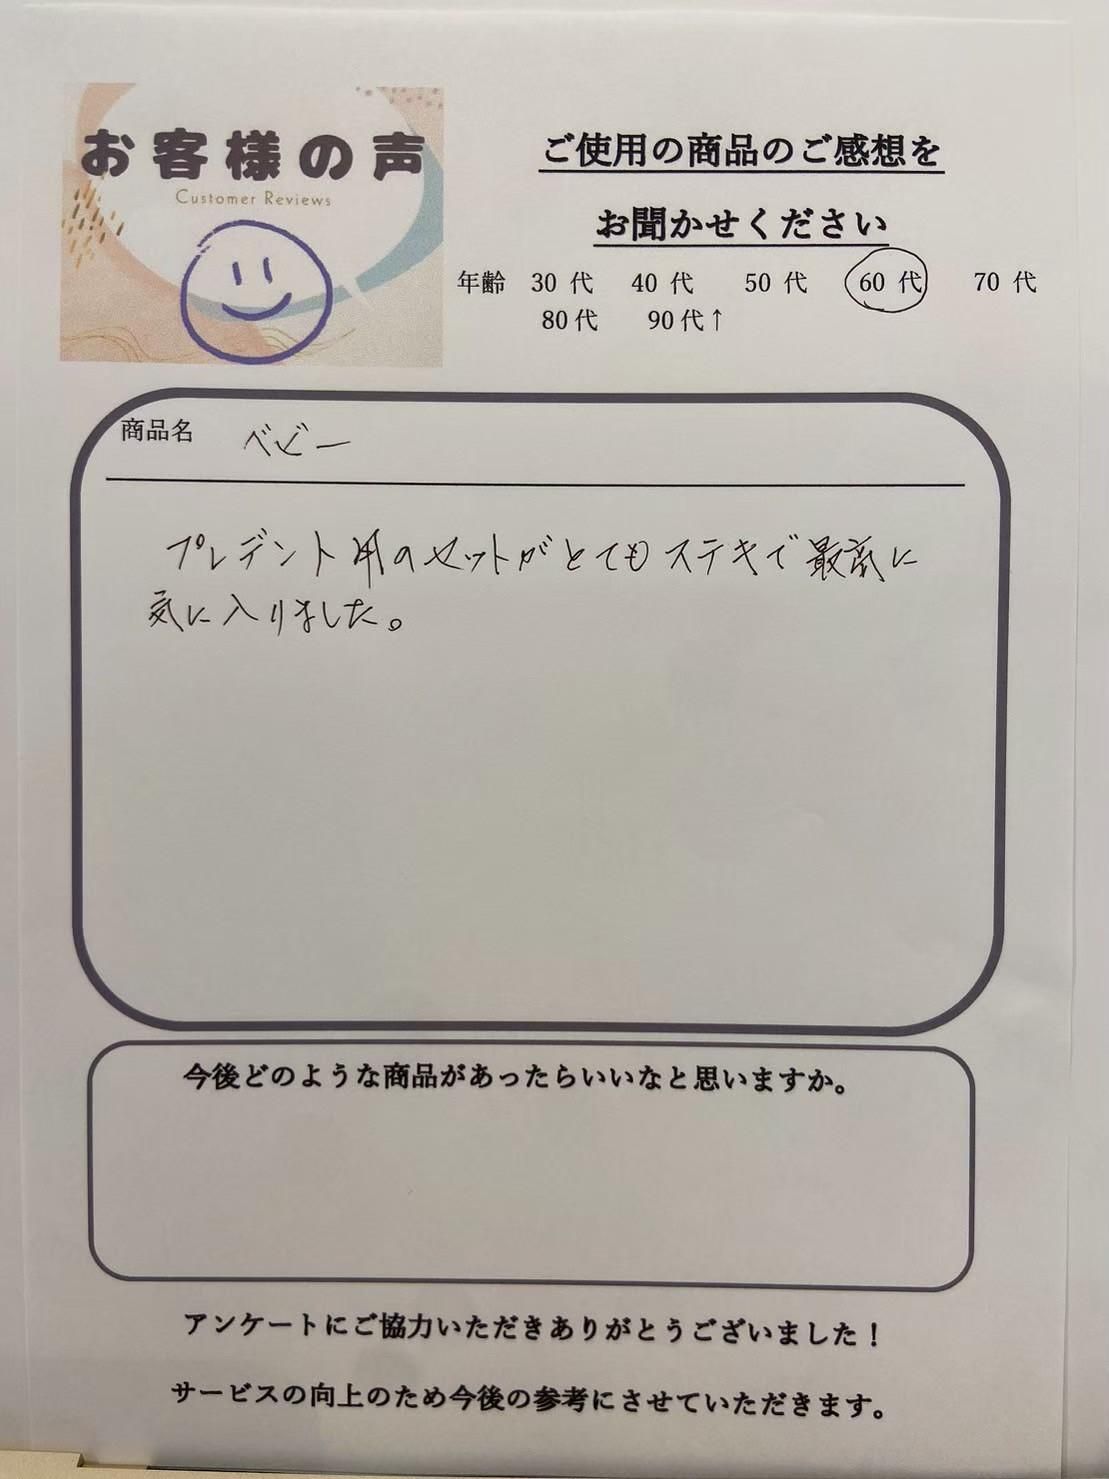 お客様の声
Customer Reviews
ご使用の商品のご感想を
お聞かせください
年齢 30 代 40 代 50 代 60 代 70 代
80代 90代↑
商品名 ベビー
プレデント用のセットがとてもステキで最高に
気に入りました。
今後どのような商品があったらいいなと思いますか。
アンケートにご協力いただきありがとうございました!
サービスの向上のため今後の参考にさせていただきます。